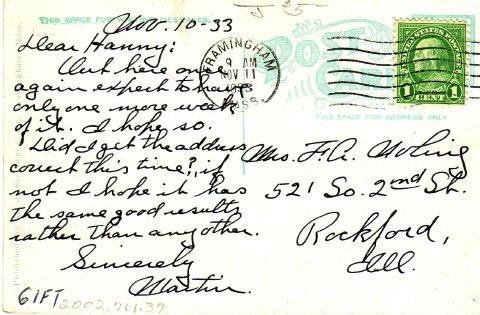 Nov. 10-33
J $5
THIS SPACE FOR
Dear Hanny:
Out here once
again expect to have
only one more week
of it. I hope so.
Did I get the address
correct this time?, if
not I hope it has
the same good results
rather than any other.
Sincerely
Martin.
GIFT 2002.761.37
FRAMINGHAM
9 AM
NOV 11
MASS.
POST CARD
THIS SPACE FOR ADDRESS ONLY
1 CENT 1
Mrs. F. A.
521 So. 2nd St.
Rockford,
Ill.